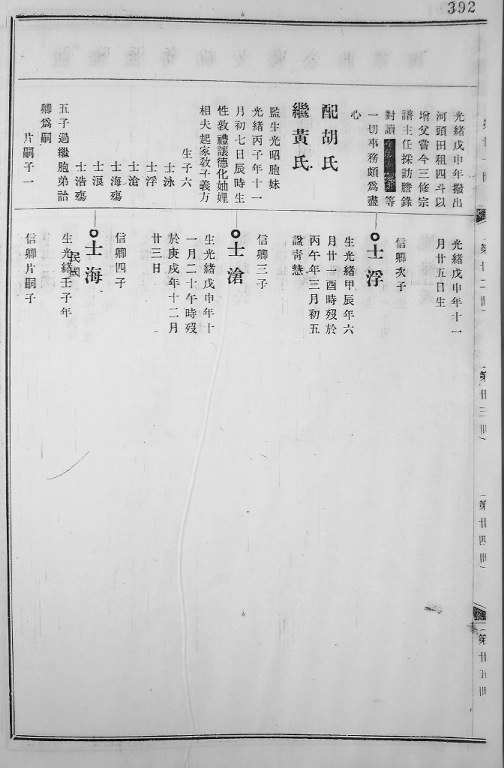 392
光緒戊申年撥出
河頭田租四斗以
增父嘗今三修宗
譜主任採訪謄錄
對讀
等
一切事務頗為盡
心
配胡氏
繼黃氏
監生光昭胞妹
光緒丙子年十一
月初七日辰時生
性敦禮讓德化妯娌
相夫起家教子義方
生子六
士泳
士浮
士滄
士海殤
士浪
士浩殤
五子過繼胞弟詒
卿為嗣
片嗣子一
光緒戊申年十一
月廿五日生
信卿次子
士浮
生光緒甲辰年六
月廿一酉時歿於
丙午年三月初五
諡青慧
信卿三子
士滄
生光緒戊申年十
一月二十午時歿
於庚戌年十二月
廿三日
信卿四子
士海
民國
生光緒壬子年
信卿片嗣子
第廿二世
第廿三世
第廿四世
第廿五世